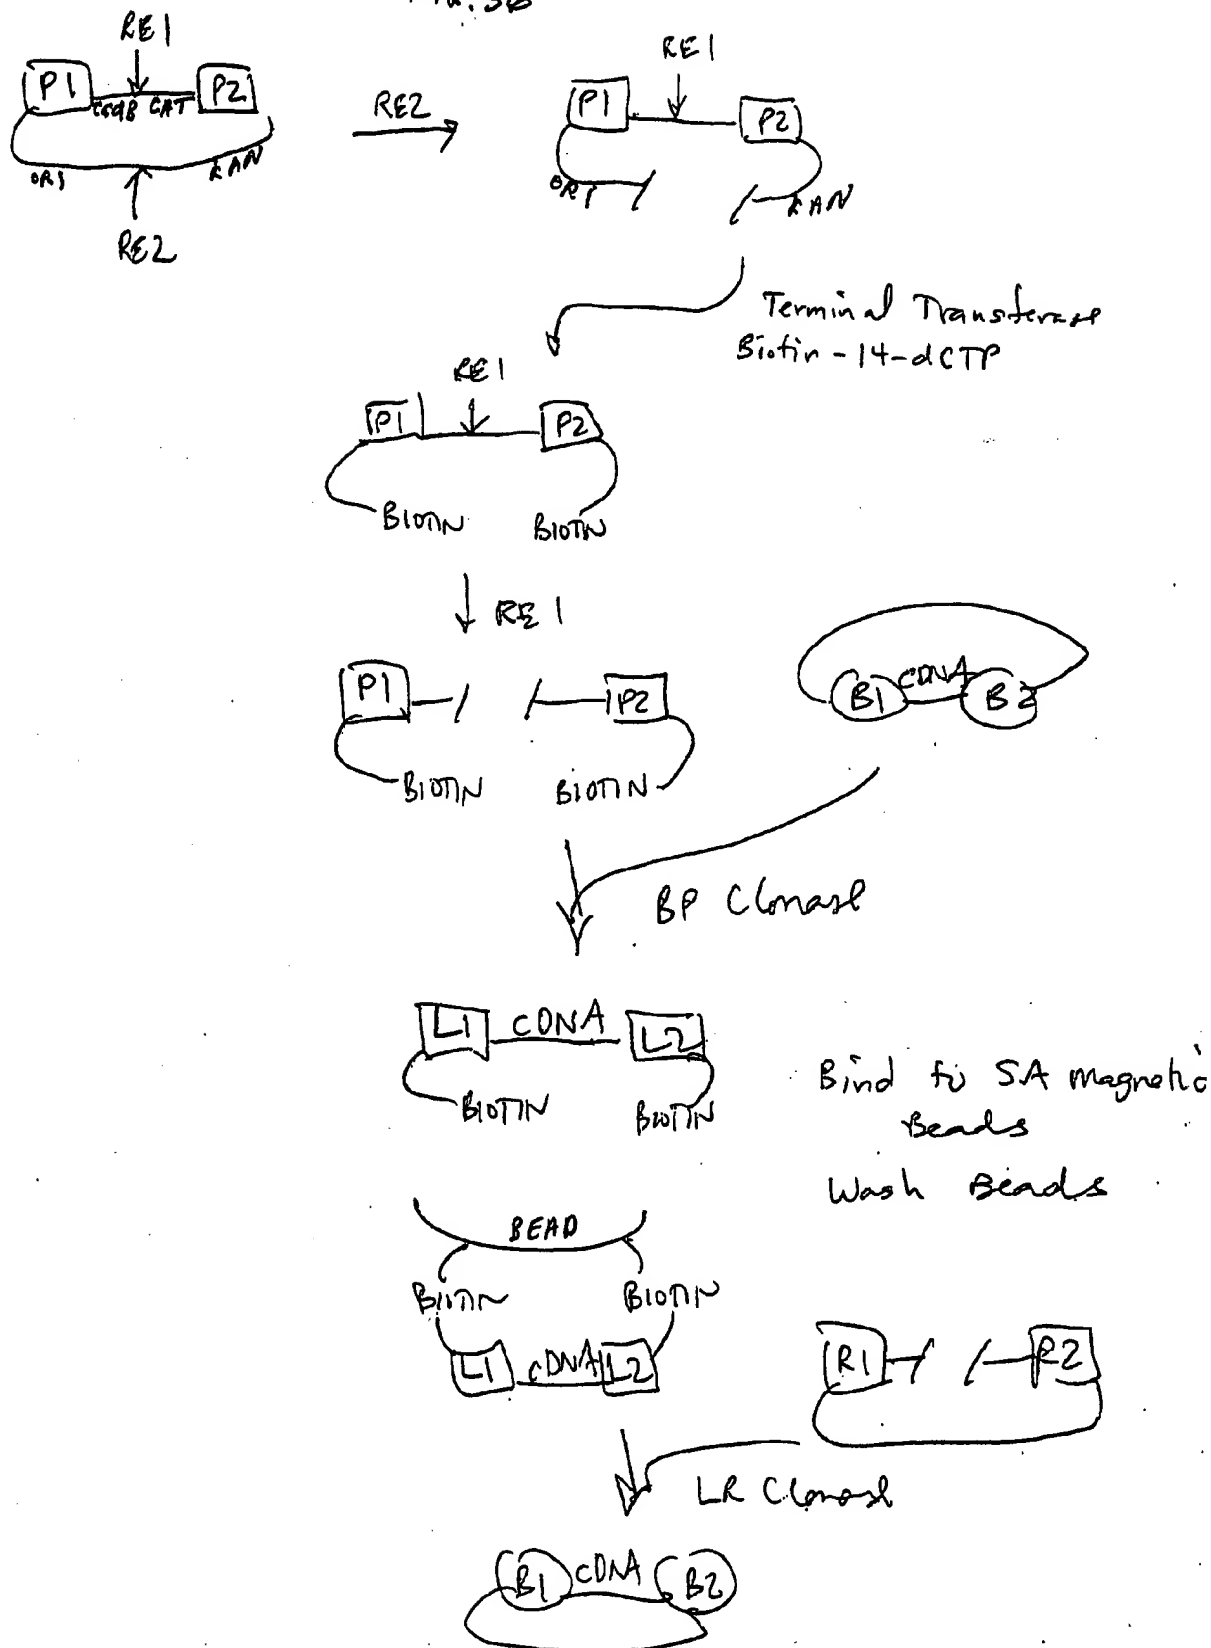 RE1
P1
ccdB CAT
P2
ORI
KAN
RE2
RE2
RE1
P1
P2
ORI
KAN
Terminal Transferase
Biotin-14-dCTP
RE1
P1
P2
BIOTIN BIOTIN
RE1
P1
P2
BIOTIN BIOTIN
B1 cDNA B2
BP Clonase
L1 cDNA L2
BIOTIN BIOTIN
Bind to SA magnetic
Beads
Wash Beads
BEAD
BIOTIN BIOTIN
L1 cDNA L2
R1 R2
LR Clonase
B1 cDNA B2